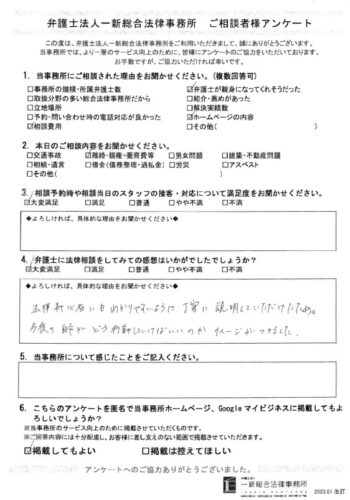 弁護士法人一新総合法律事務所　ご相談者様アンケート
この度は、弁護士法人一新総合法律事務所をご利用いただきまして、誠にありがとうございます。
当事務所では、より一層のサービス向上のために、皆様にアンケートのご協力をいただいております。
お手数ですが、ご協力いただければ幸いです。
1. 当事務所にご相談された理由をお聞かせください。（複数回答可）
□事務所の規模・所属弁護士数　☑弁護士が親身になってくれそうだった
□取扱分野の多い総合法律事務所だから　□紹介・薦めがあった
□立地場所　□解決実績数
□予約・問い合わせ時の電話対応が良かった　☑ホームページの内容
☑相談費用　□その他（　）
2. 本日のご相談内容をお聞かせください。
□交通事故　☑離婚・親権・養育費等　□男女問題　□建築・不動産問題
□相続・遺言　□借金（債務整理・過払金）　□労災　□アスベスト
□その他（　）
3. 相談予約時や相談当日のスタッフの接客・対応について満足度をお聞かせください。
☑大変満足　□満足　□普通　□やや不満　□不満
◆よろしければ、具体的な理由をお聞かせください◆
4. 弁護士に法律相談をしてみての感想はいかがでしたでしょうか？
☑大変満足　□満足　□普通　□やや不満　□不満
◆よろしければ、具体的な理由をお聞かせください◆
法律初心者にもわかりやすいように丁寧に説明していただけたため
今後の
どう
していけばいいのか イメージがつきました。
5. 当事務所について感じたことをご記入ください。
6. こちらのアンケートを匿名で当事務所ホームページ、Googleマイビジネスに掲載してもよろしいでしょうか？
※当事務所のサービス向上のために掲載させていただくものです。
※ご回答内容には十分配慮し、お客様に差し支えのない範囲で掲載させていただきます。
☑掲載してもよい　□掲載は控えてほしい
アンケートへのご協力ありがとうございました。
弁護士法人
一新総合法律事務所
2023.01 改訂